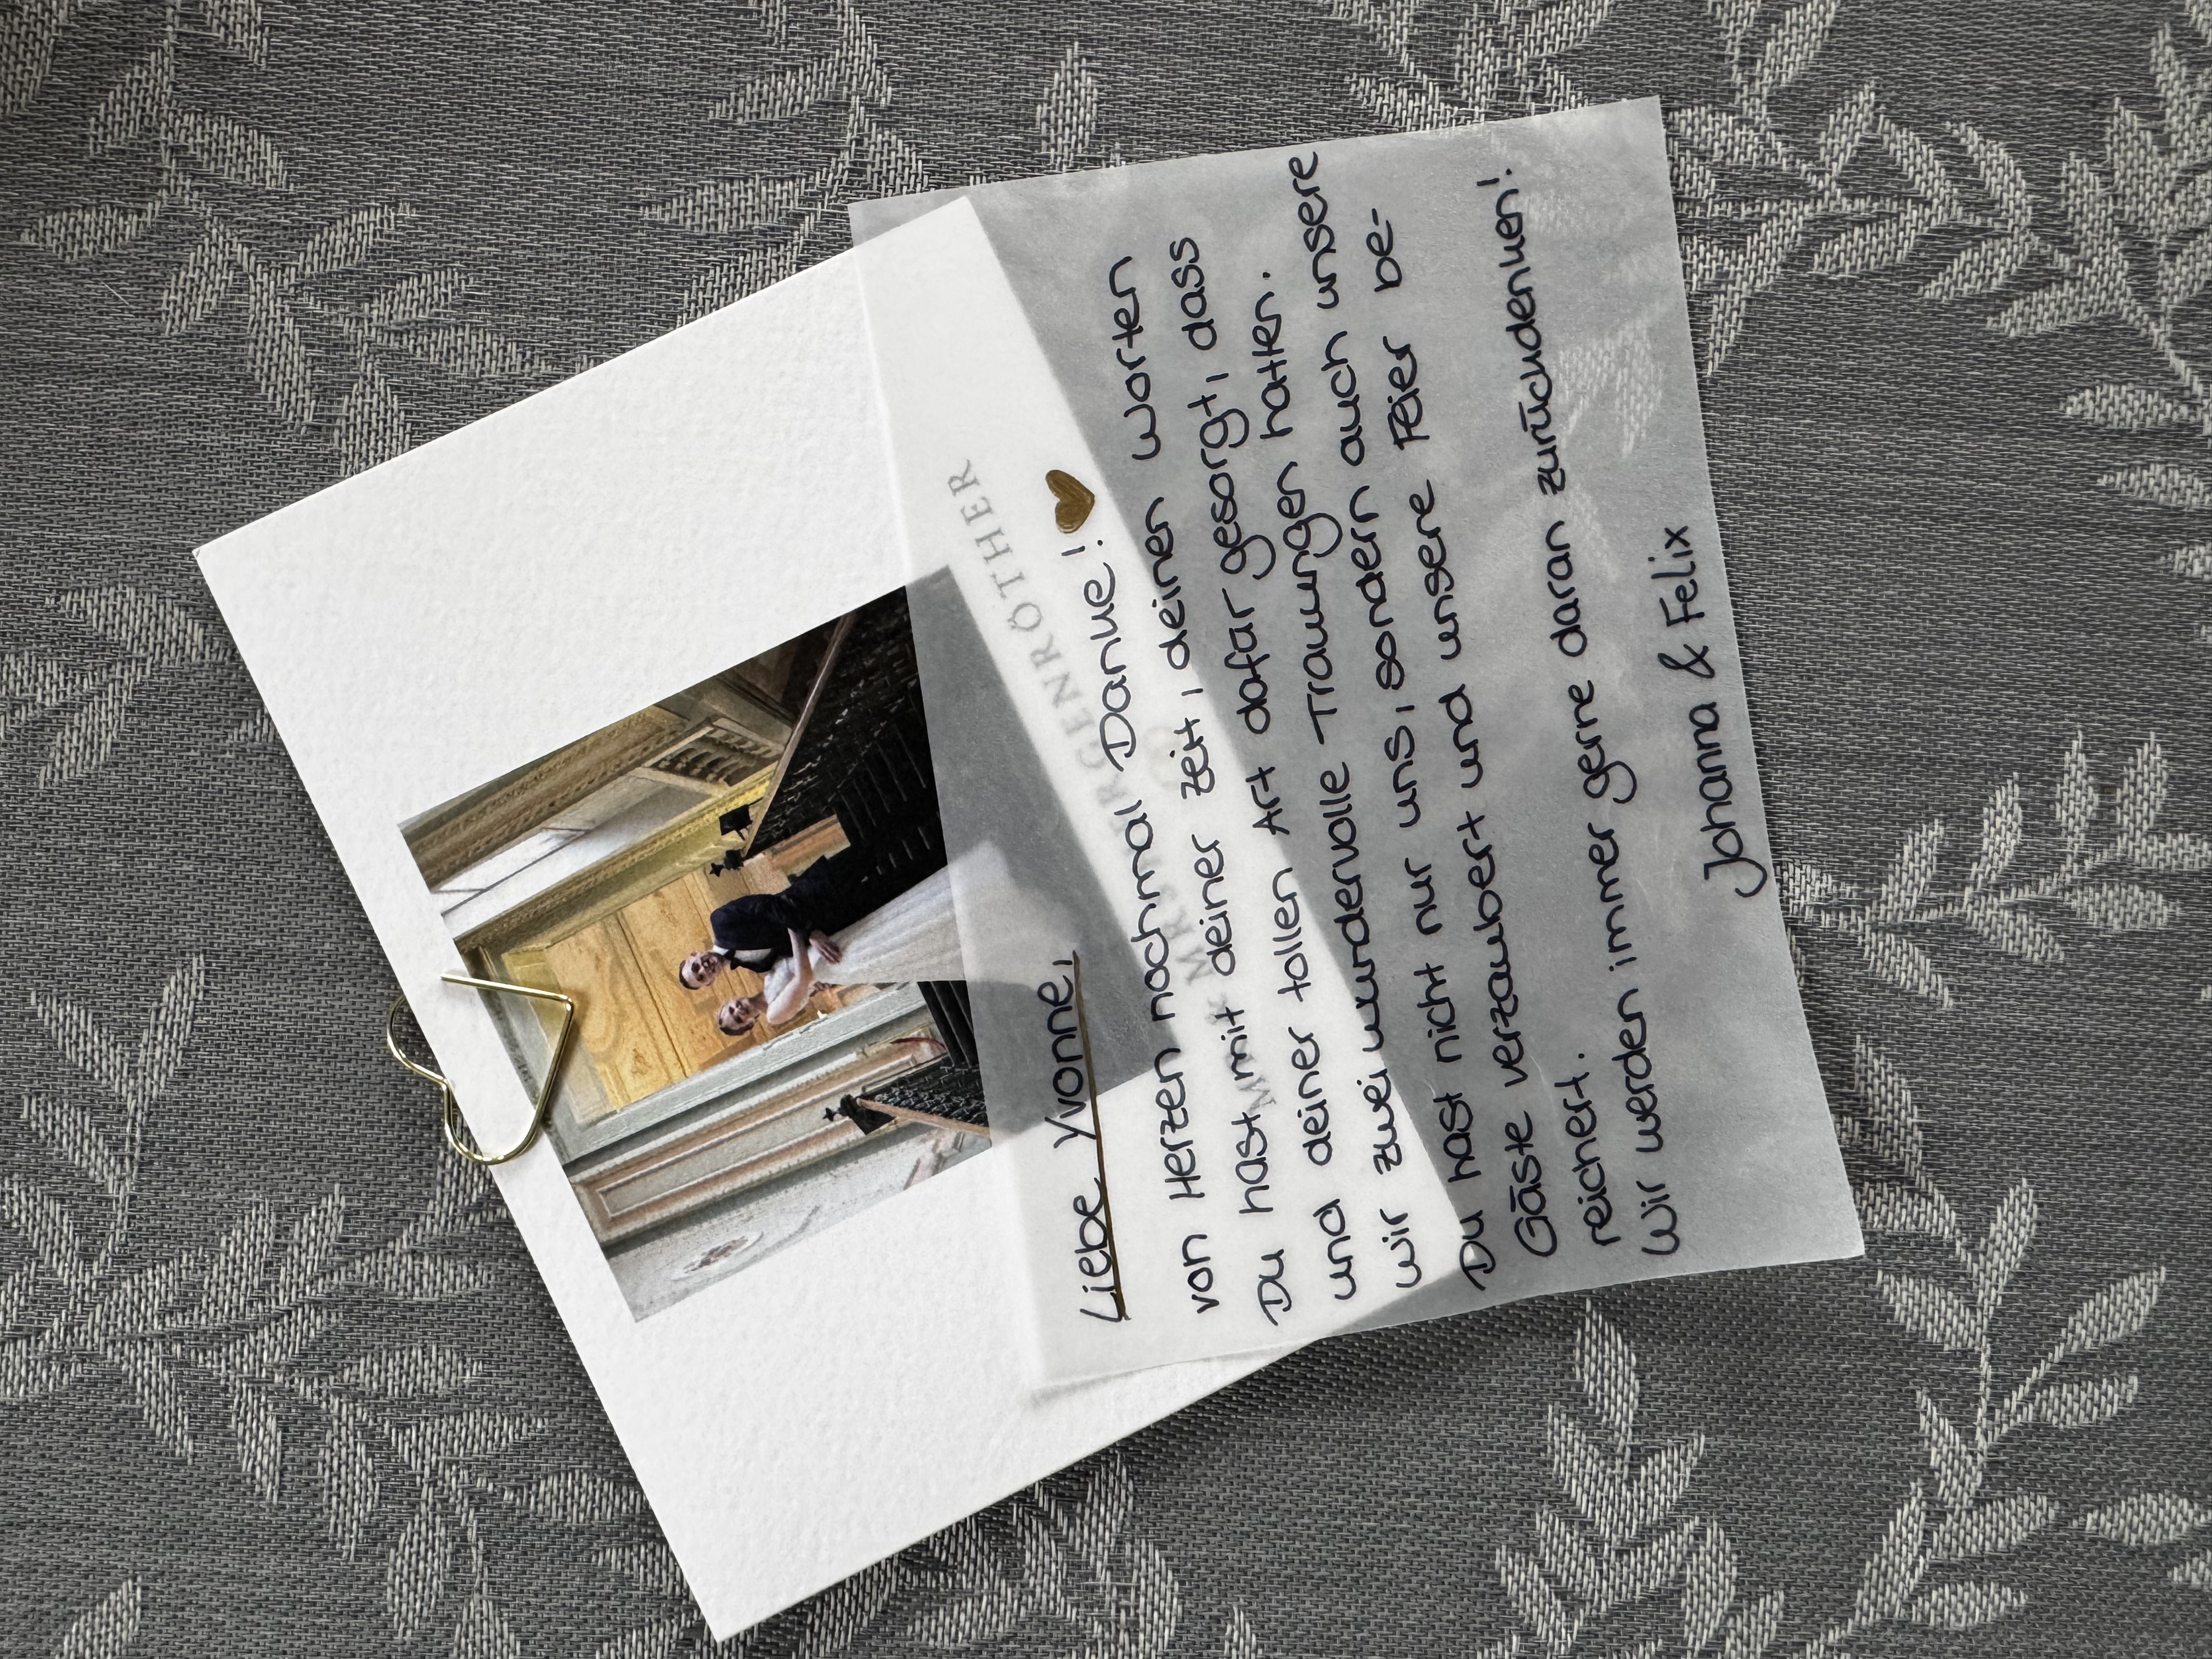 Liebe Yvonne,
von Herzen nochmal Danke!
Du hast mit deiner Zeit, deinen Worten
und deiner tollen Art dafür gesorgt, dass
wir zwei wundervolle Trauungen hatten.
Du hast nicht nur uns, sondern auch unsere
Gäste verzaubert und unsere Feier be-
reichert.
Wir werden immer gerne daran zurückdenken!
Johanna & Felix